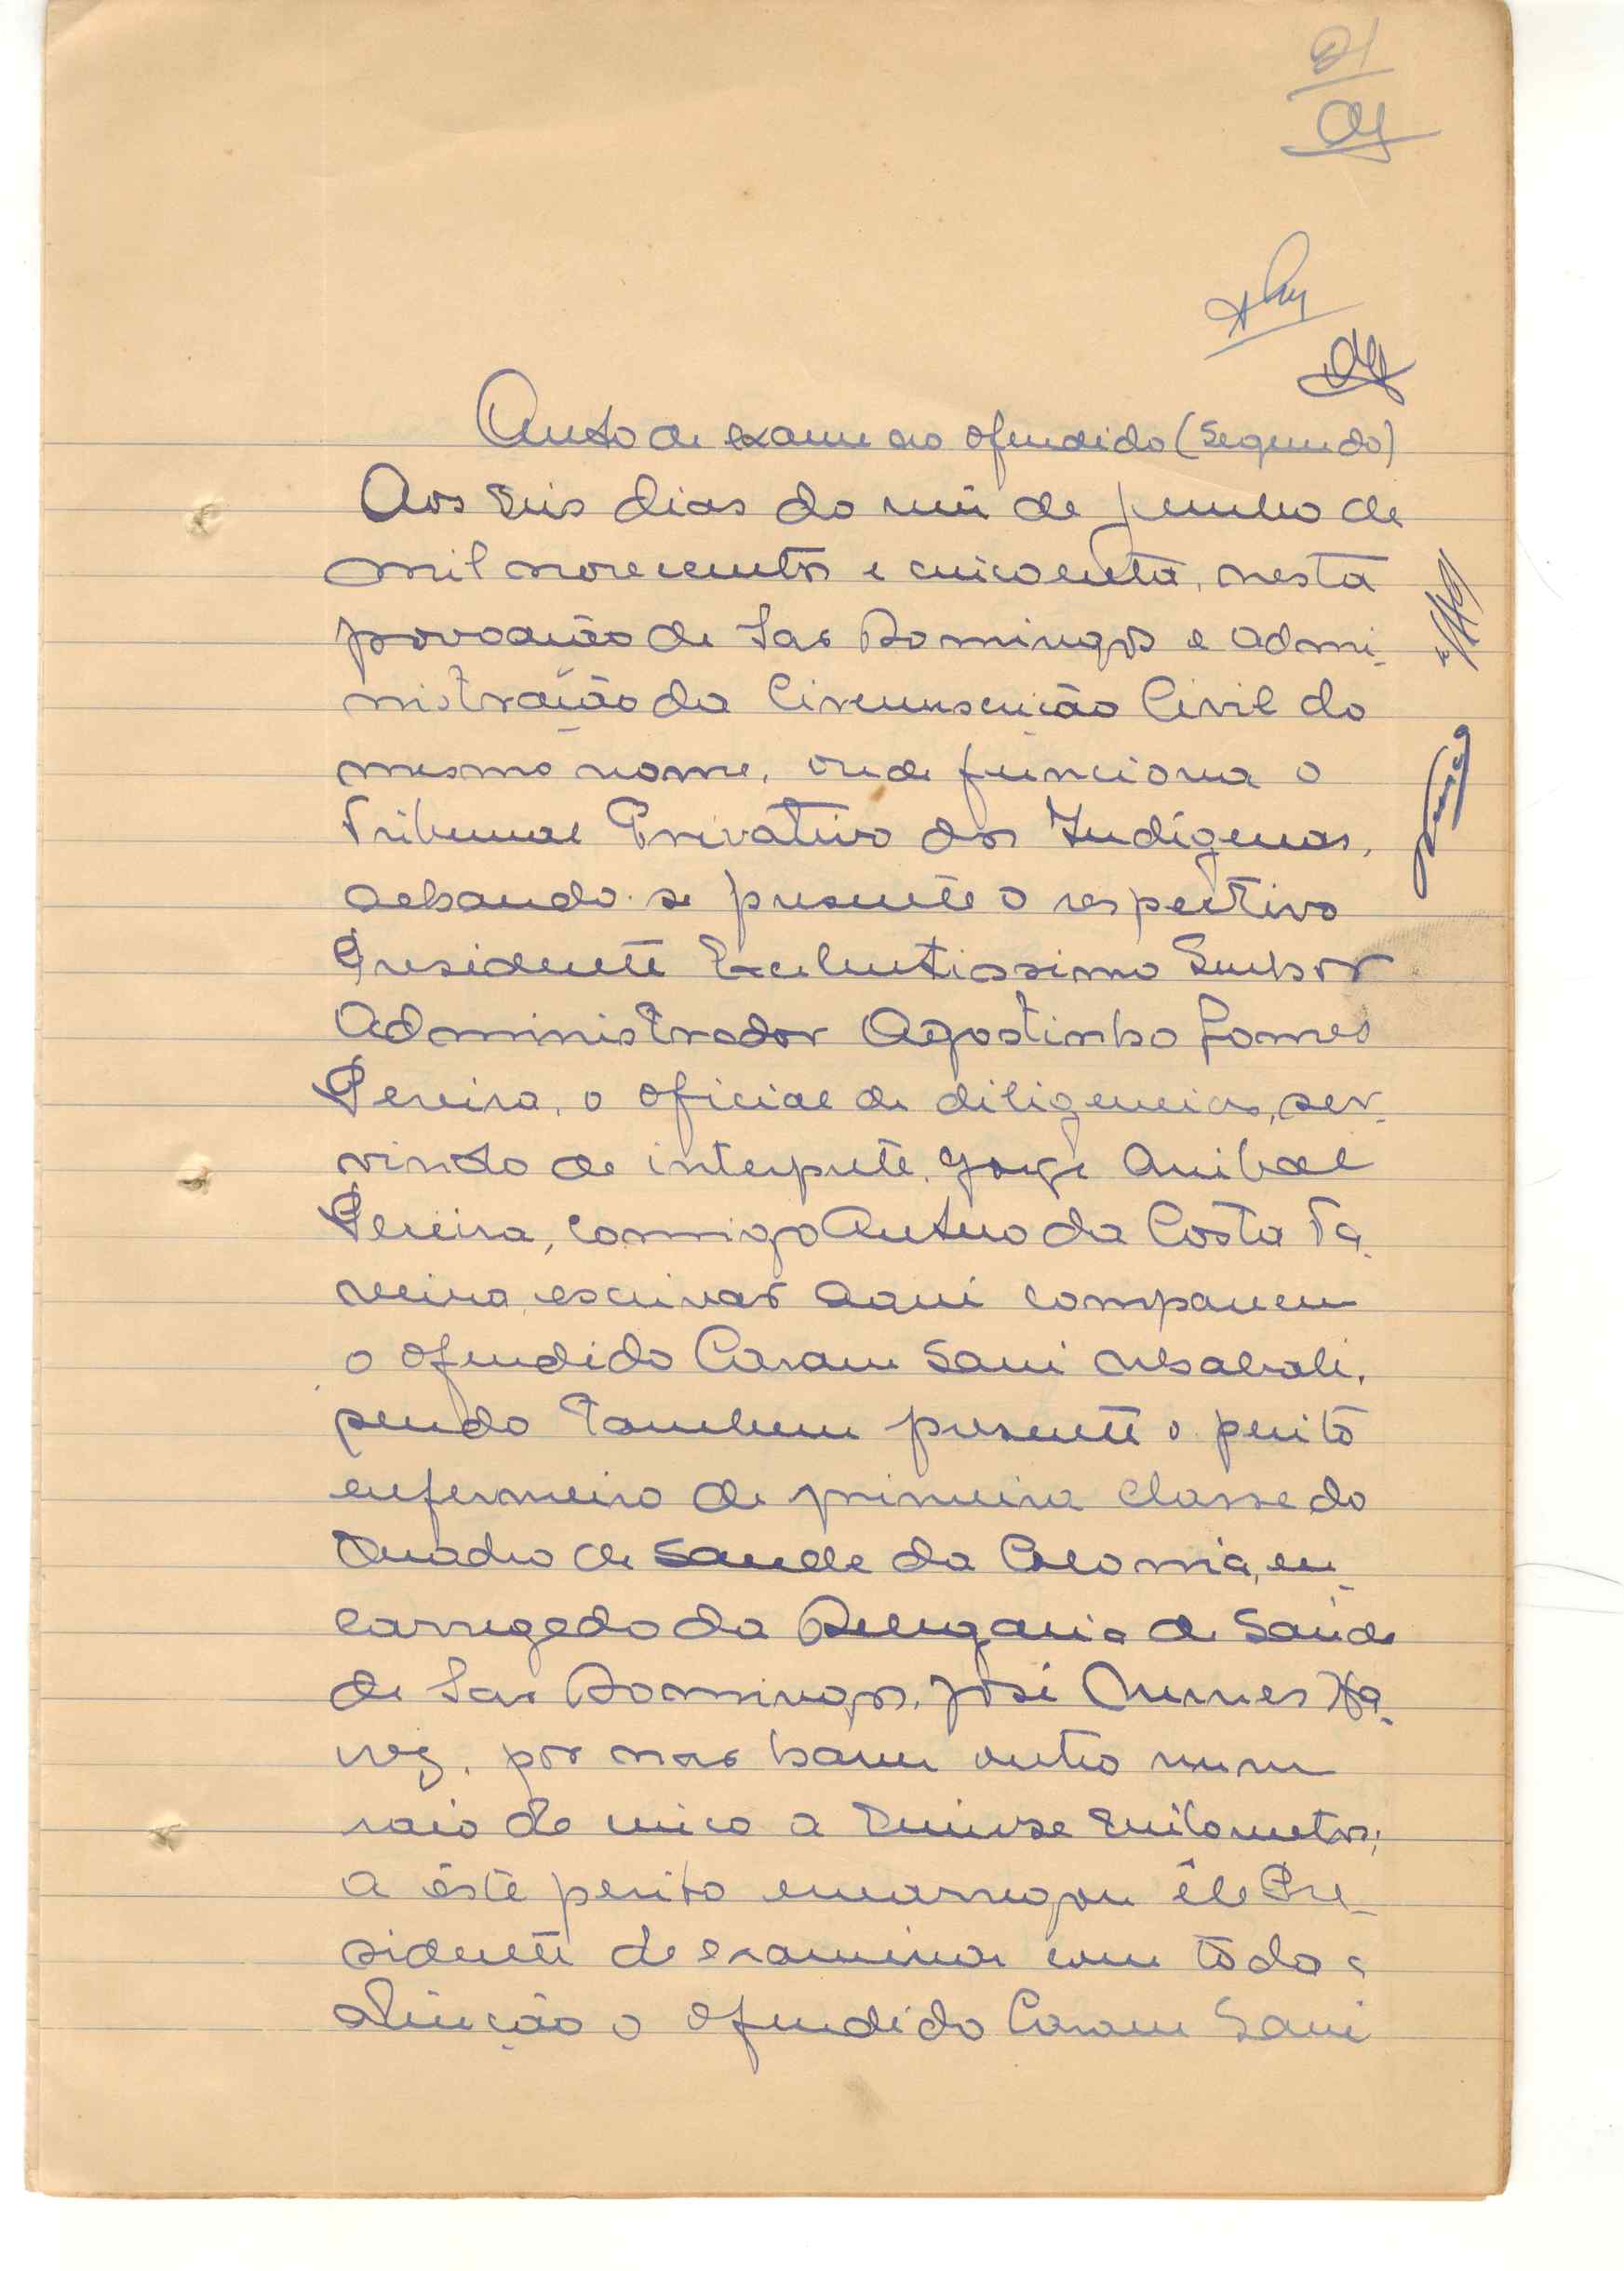 21
Auto de exame ao ofendido (Segundo)
Aos seis dias do mês de Junho de
mil novecentos e cincoenta, nesta
povoação de São Domingos e admi-
nistração da Circunscrição Civil do
mesmo nome, onde funciona o
Tribunal Privativo dos Indígenas,
achando-se presente o respectivo
Presidente Excelentissimo Senhor
Administrador Agostinho Gomes
Pereira, o oficial de diligencias, ser-
vindo de interprete, Jorge Anibal
Pereira, comigo Antero da Costa Ta-
veira, escrivão aqui compareceu
o ofendido Caram Sani
sendo tambem presente o perito
enfermeiro de primeira classe do
Quadro de Saude da Colonia, en-
carregado da Delegacia de Saude
de São Domingos, José Nunes
por não haver outro num
raio de cinco a quinze quilometros;
a êste perito encarregou êle Pre-
sidente de examinar com toda a
atenção o ofendido Caram Sani